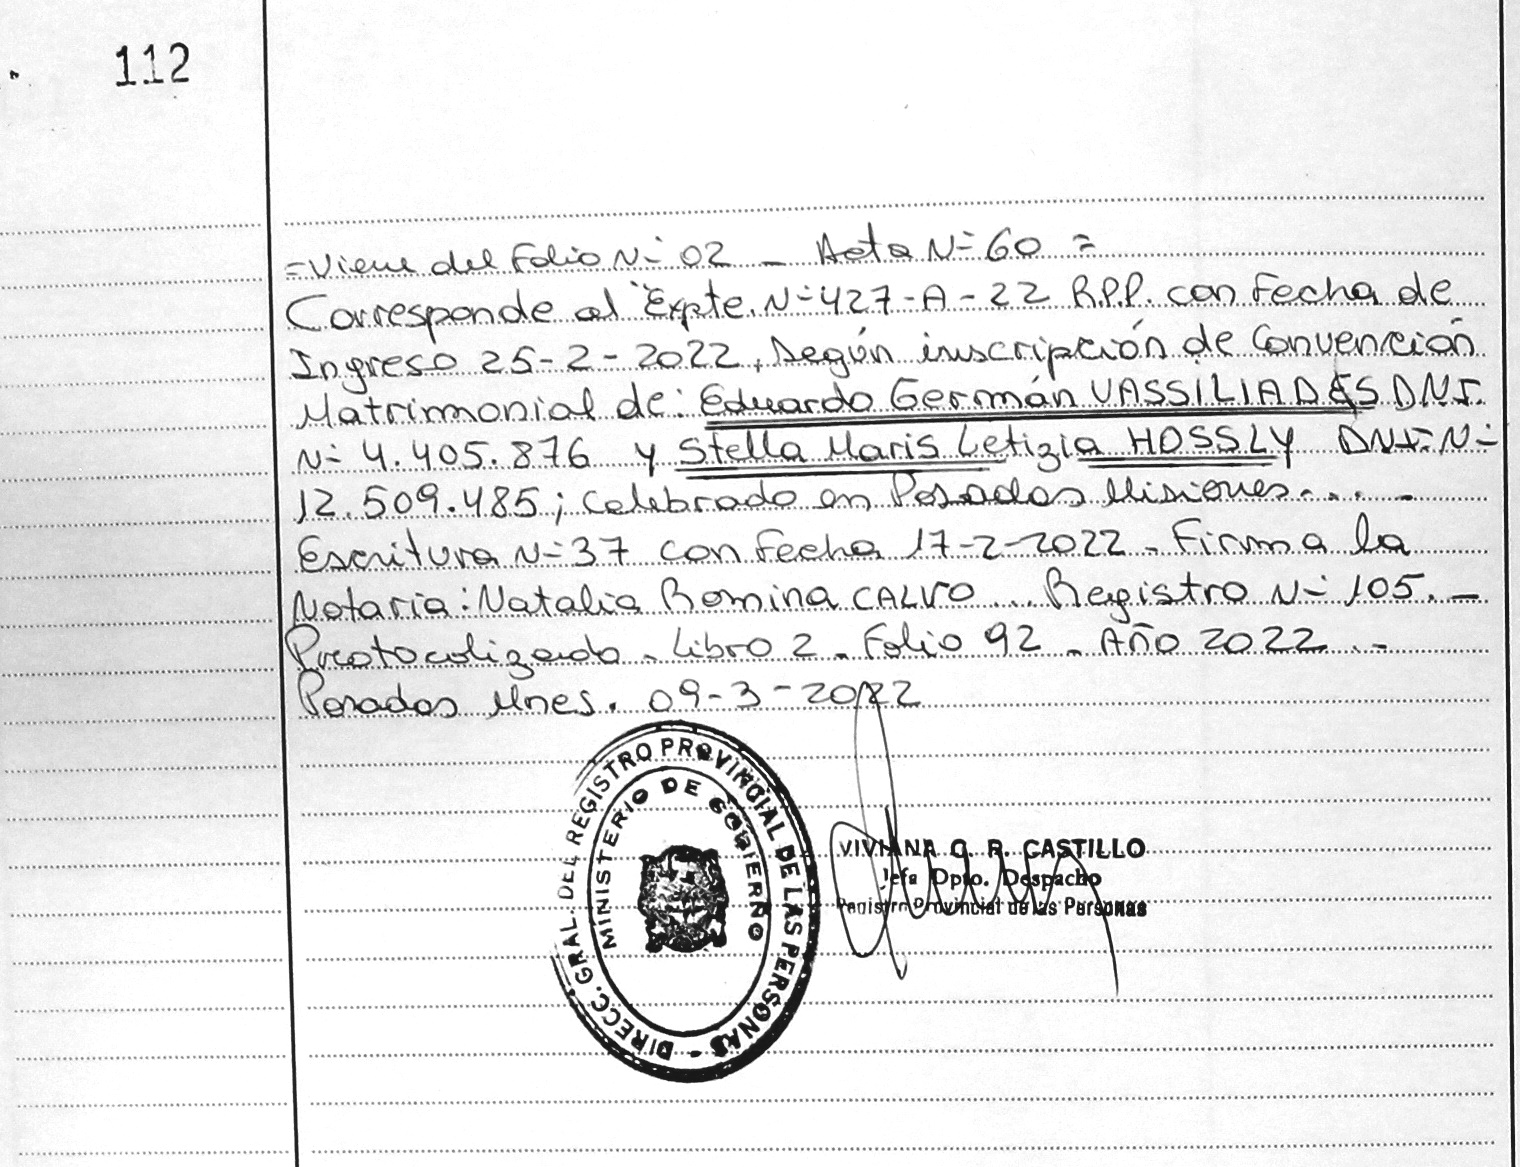 112
=Viene del Folio Nº 02 _ Acta Nº 60 =
Corresponde al Expte. Nº 427-A-22 R.P.P. con Fecha de
Ingreso 25-2-2022, Según inscripción de Convención
Matrimonial de: Eduardo Germán VASSILIADES DNI.
Nº 4.405.876 y Stella Maris Letizia HOSSLY DNI. Nº
12.509.485; celebrado en Posadas Misiones...-
Escritura Nº 37 con Fecha 17-2-2022 - Firma la
Notaria: Natalia Romina CALVO... Registro Nº 105. -
Protocolizado - Libro 2 - Folio 92 - Año 2022..-
Posadas Mnes. 09-3-2022
DIRECC. GRAL. DEL REGISTRO PROVINCIAL DE LAS PERSONAS -
MINISTERIO DE GOBIERNO
VIVIANA G. R. CASTILLO
Jefa Dpto. Despacho
Registro Provincial de las Personas